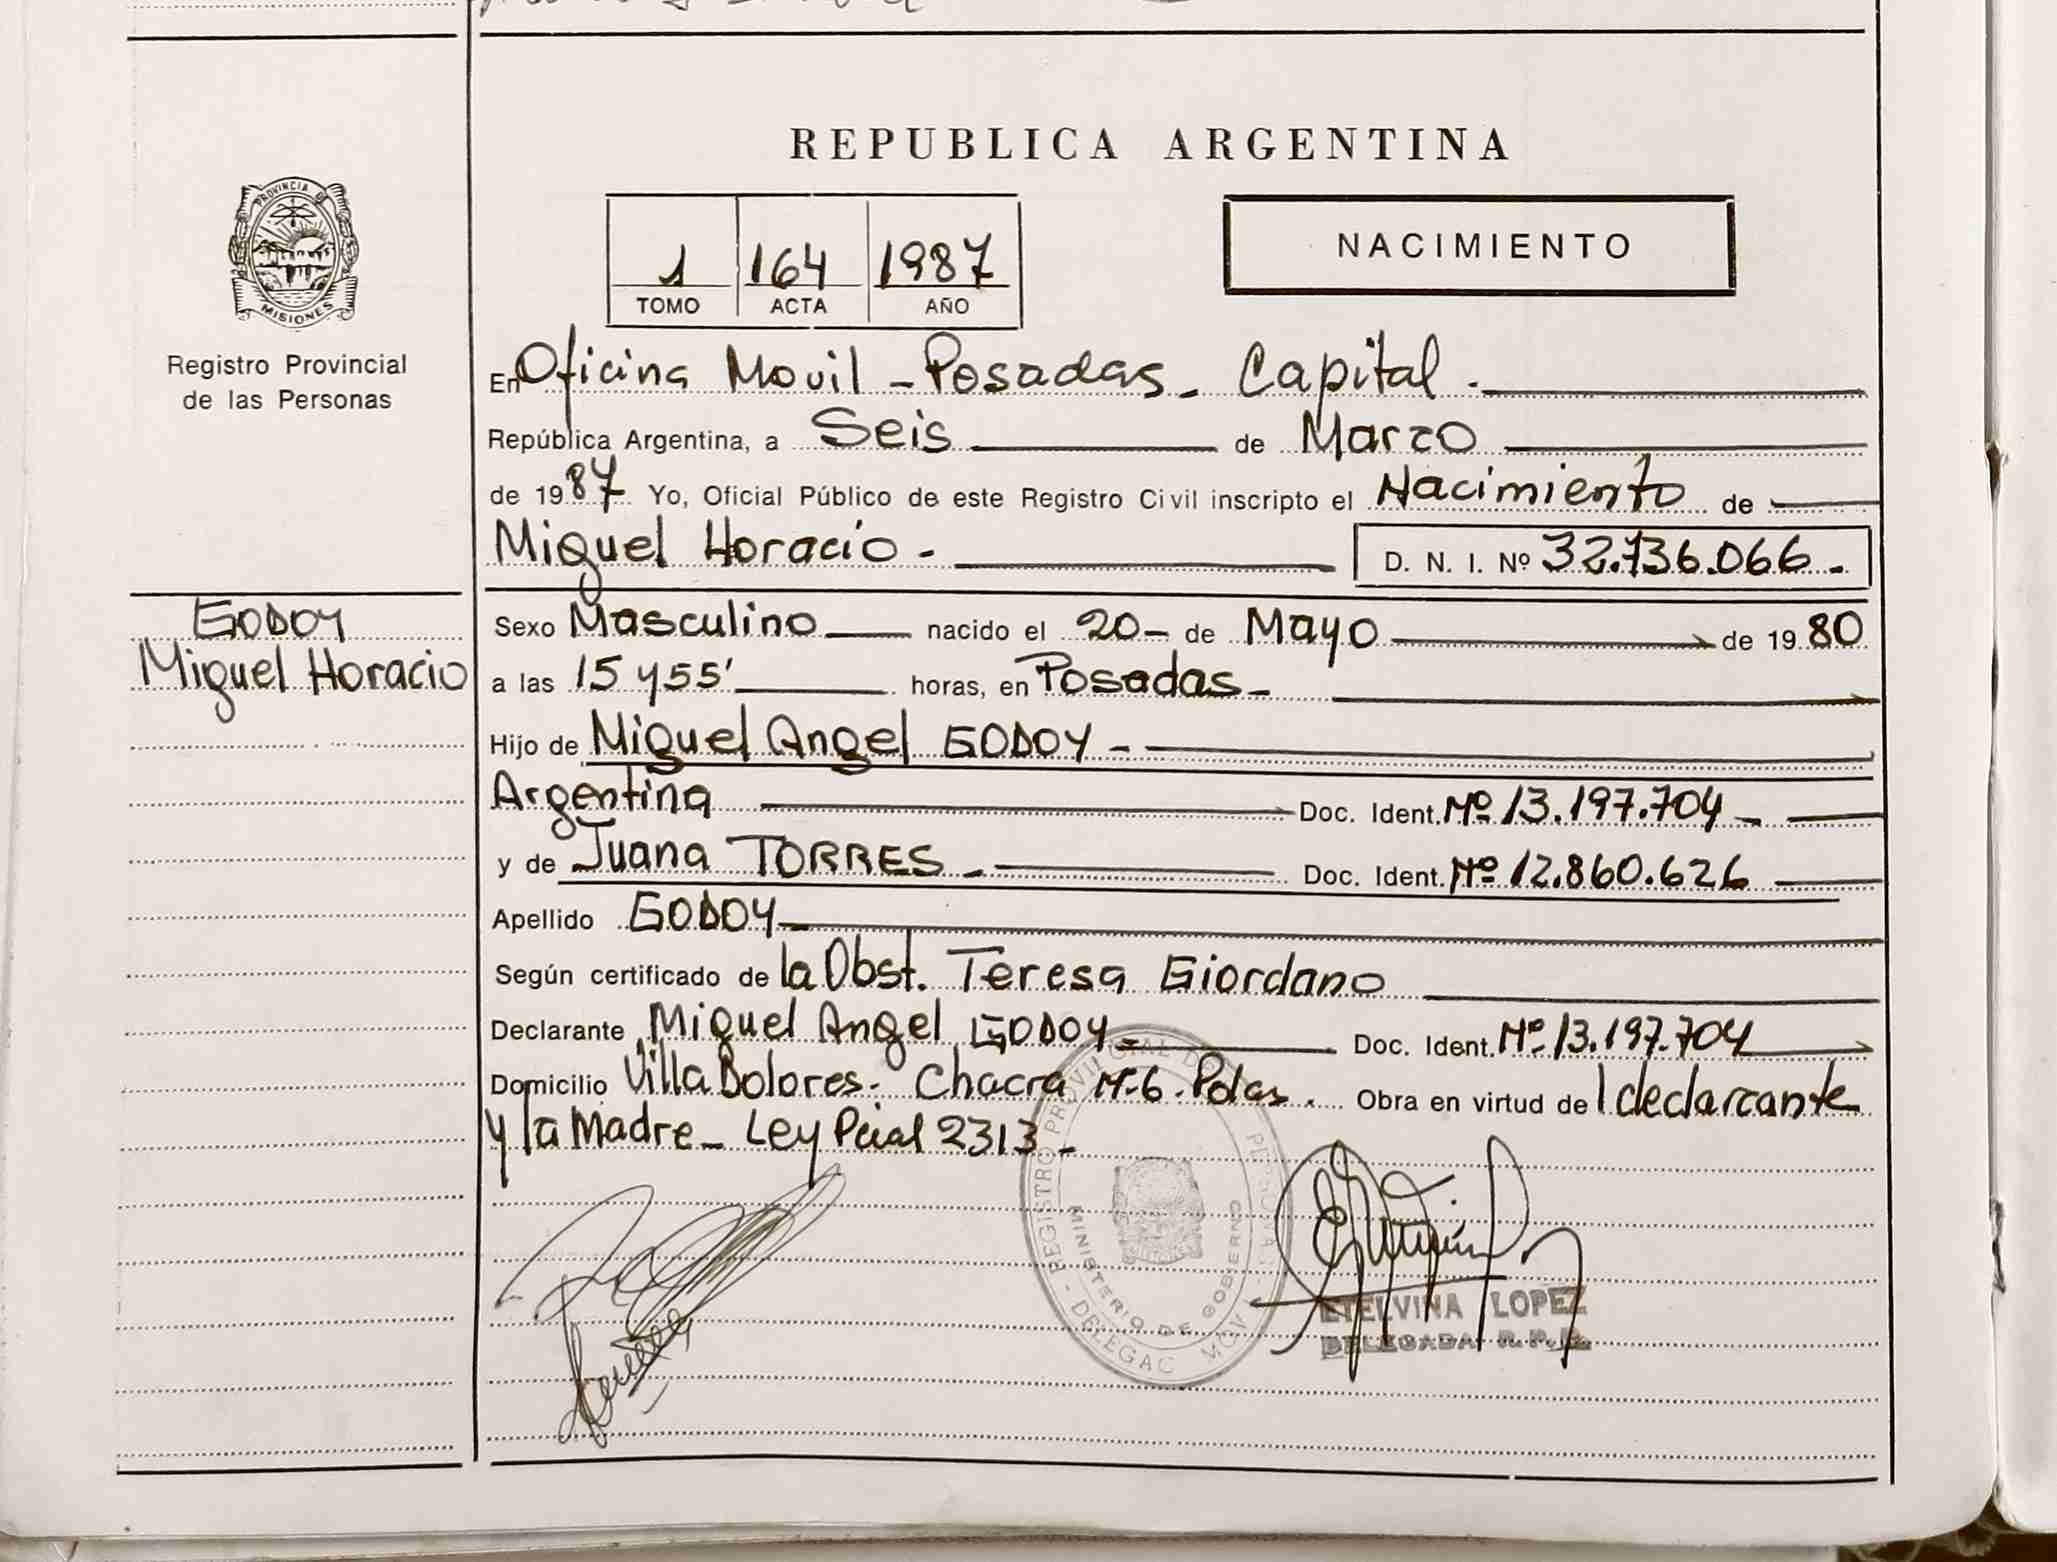 REPUBLICA ARGENTINA
PROVINCIA DE
MISIONES
Registro Provincial
de las Personas
1 164 1987
TOMO ACTA AÑO
NACIMIENTO
En Oficina Movil - Posadas - Capital.
República Argentina, a Seis de Marzo
de 1987 Yo, Oficial Público de este Registro Civil inscripto el Nacimiento de
Miguel Horacio - D. N. I. Nº 32.736.066.-
GODOY
Miguel Horacio
Sexo Masculino nacido el 20- de Mayo de 1980
a las 15 y 55' horas, en Posadas-
Hijo de Miguel Angel GODOY -
Argentina Doc. Ident. Nº 13.197.704 -
y de Juana TORRES - Doc. Ident. Nº 12.860.626
Apellido GODOY -
Según certificado de la Obst. Teresa Giordano
Declarante Miguel Angel GODOY - Doc. Ident. Nº 13.197.704
Domicilio Villa Dolores - Chacra Nº 6. Pdas. Obra en virtud del declarcante
y la Madre - Ley Pcial 2313 -
REGISTRO PROVINCIAL DE
MINISTERIO DE GOBIERNO
ETELVINA LOPEZ
DELEGADA R.P.P.